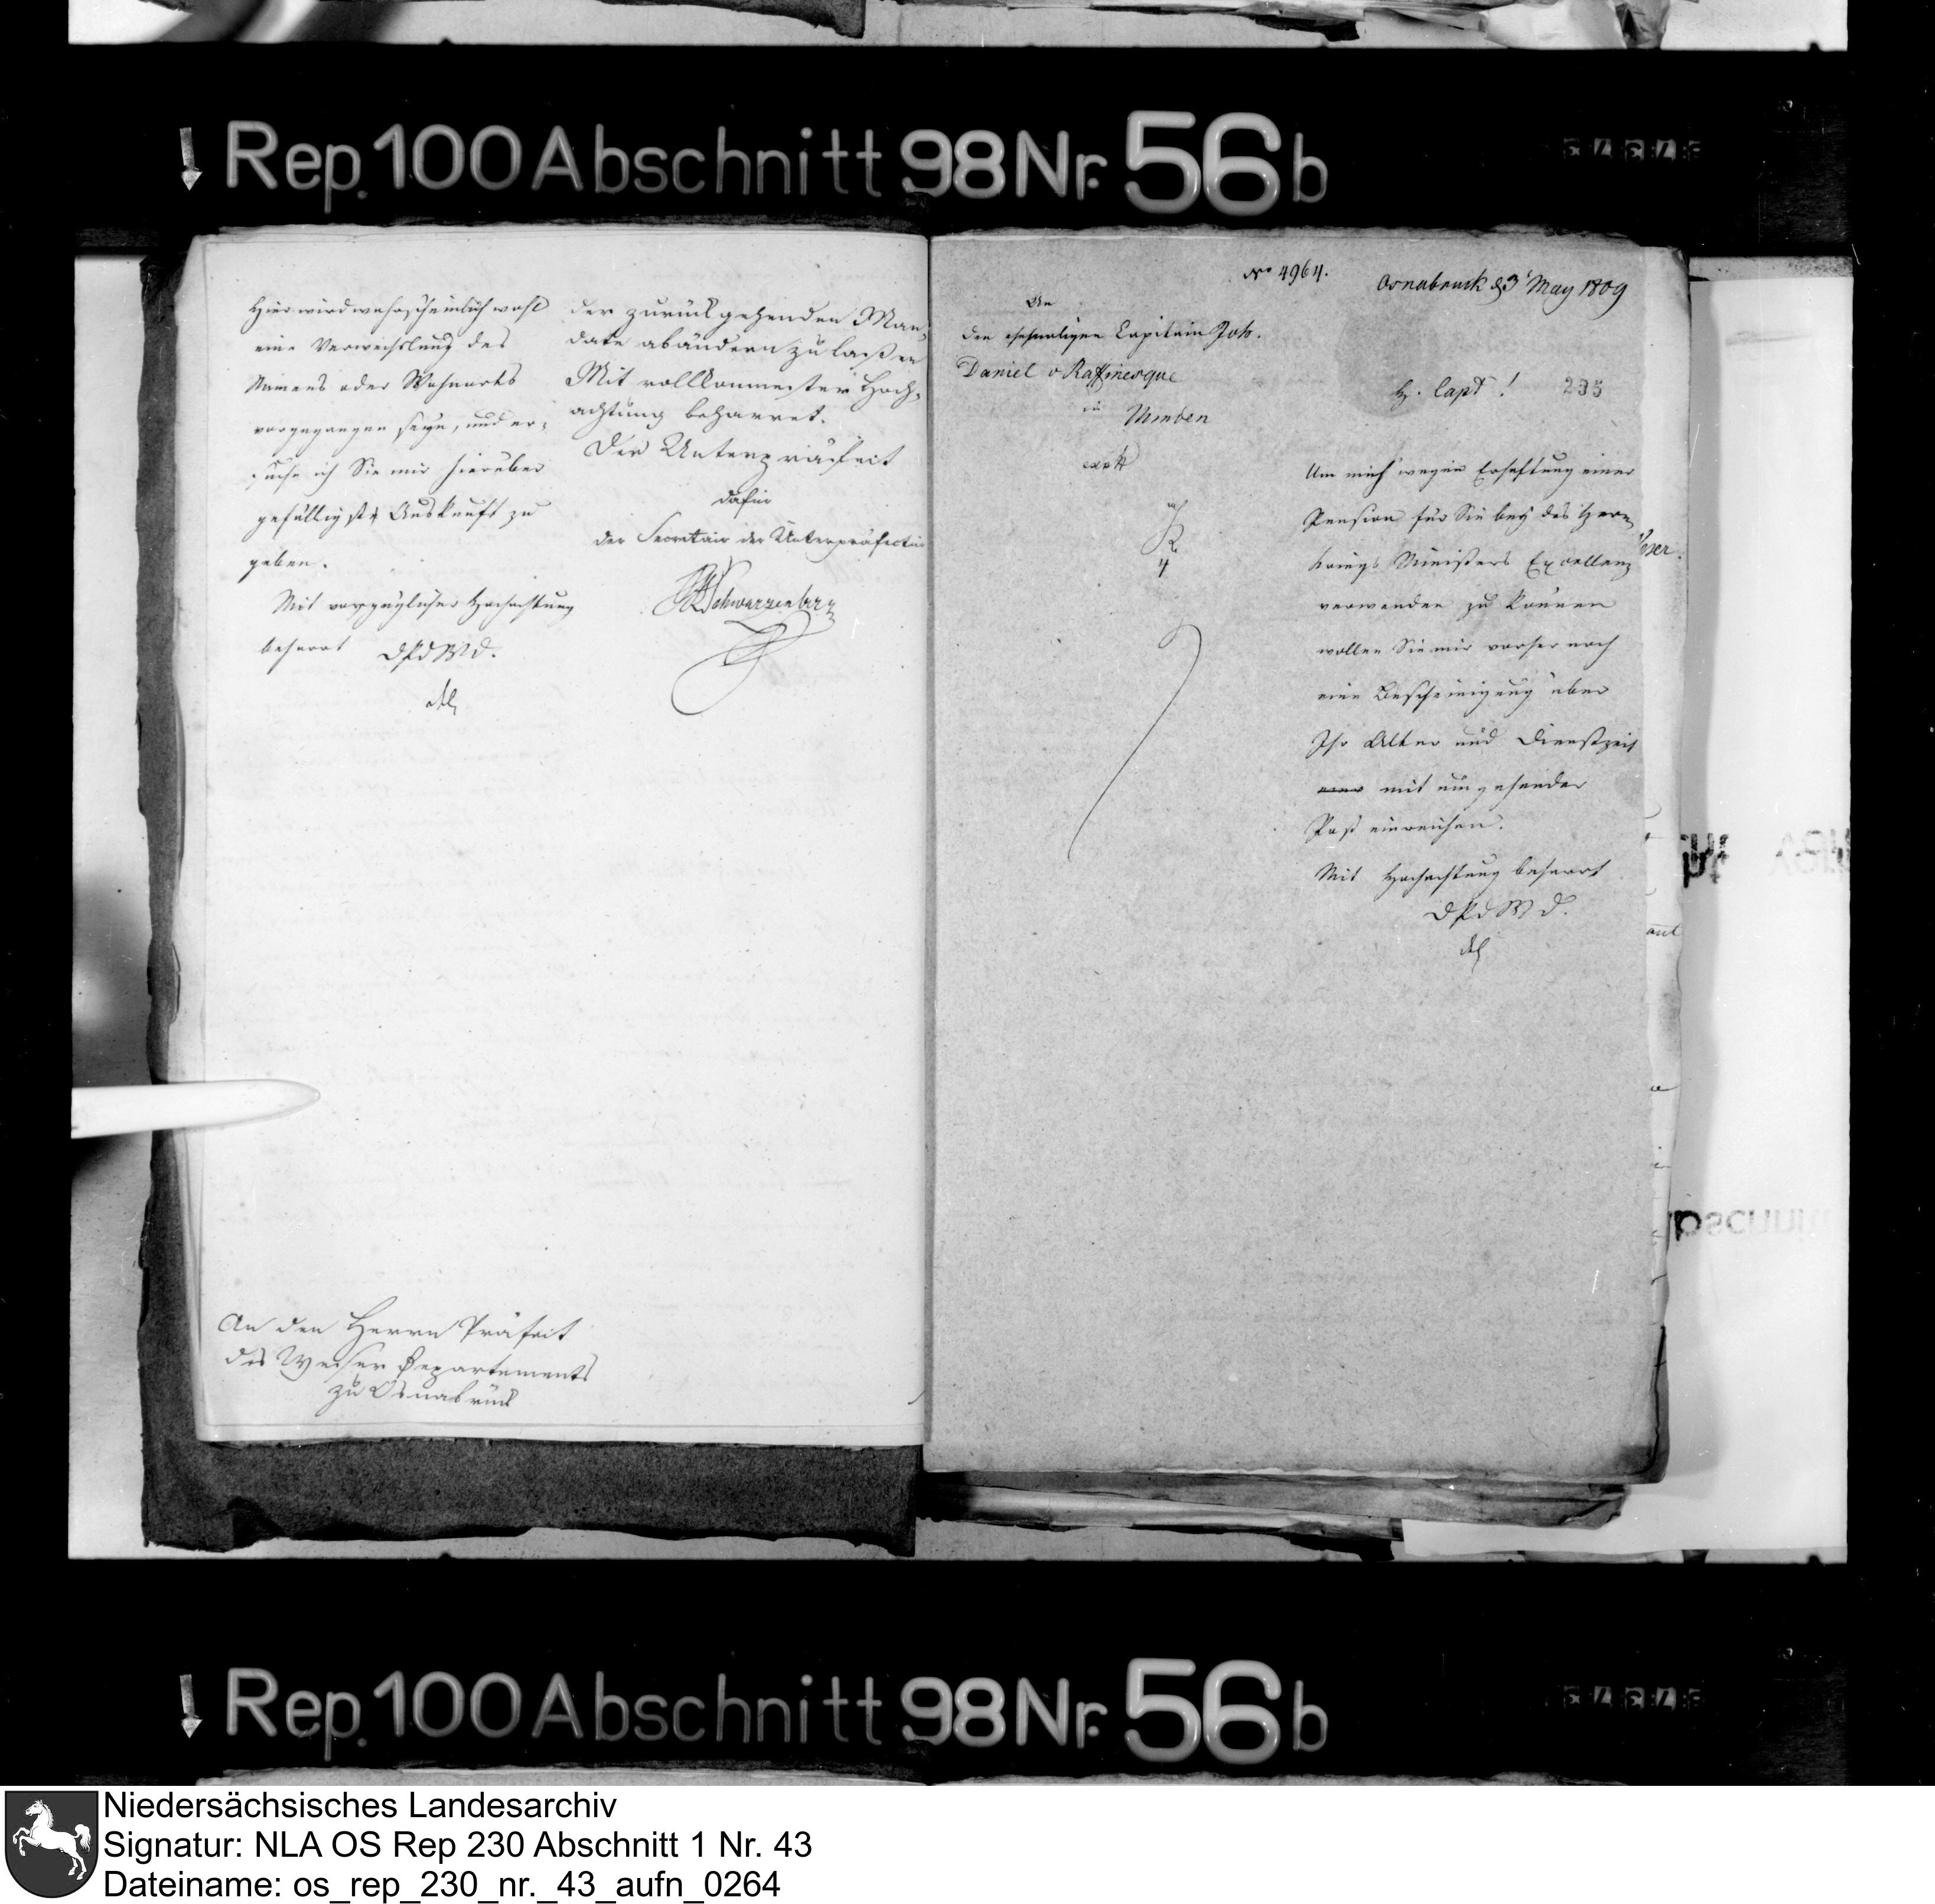 Rep. 100 Abschnitt 98 Nr. 56 b
Hier wird wahrscheinlich wohl
eine Verwechslung des
Namens oder Wohnorts
vorgegangen seyn, und er-
suche ich Sie mir hierüber
gefälligst Auskunft zu
geben.
Mit vorzüglicher Hochachtung
beharrt DPdWD.
der zurückgehenden Man-
date abändern zu laßen
Mit vollkommenster Hoch-
achtung beharret.
Der Unterpräfect
dafür
der Secretair der Unterpräfectur
Schwarzenberg
An den Herrn Präfect
des Weser Departements
zu Osnabrück
No 4964.
Osnabruck d 3t May 1809
An
den ehemaligen Capitain Joh.
Daniel v Raffinesque
in
Minden
H. Capt!
235
Um mich wegen Erhaltung einer
Pension für Sie bey des Herrn
Kriegs Ministers Excellenz
verwenden zu können
wollen Sie mir vorher noch
eine Bescheinigung über
Ihr Alter und Dienstzeit
mit umgehender
Post einreichen.
Mit Hochachtung beharrt
DPdWD.
Rep. 100 Abschnitt 98 Nr. 56 b
Niedersächsisches Landesarchiv
Signatur: NLA OS Rep 230 Abschnitt 1 Nr. 43
Dateiname: os_rep_230_nr._43_aufn_0264